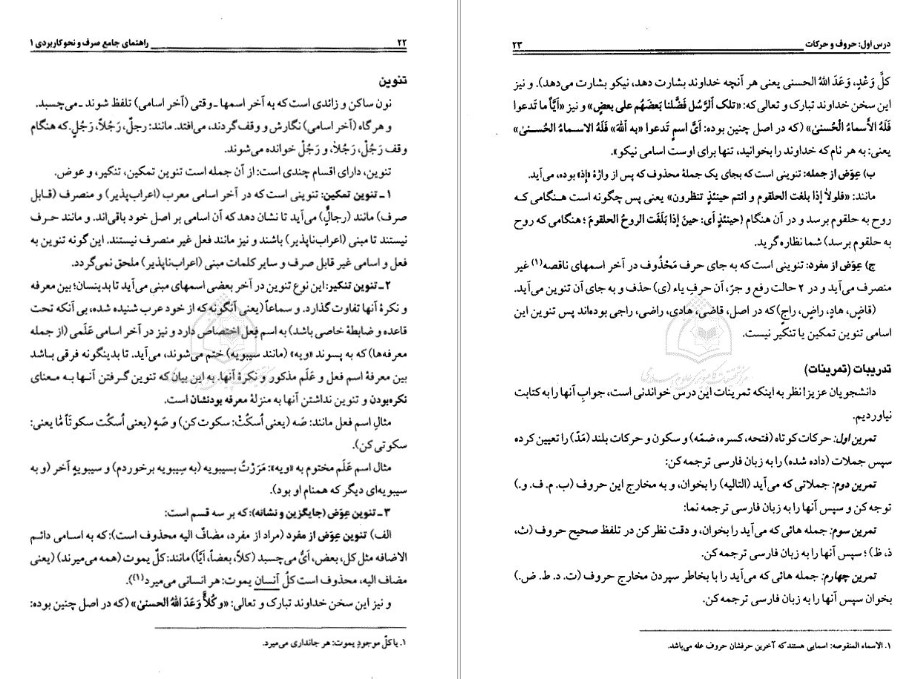 ۲۲ راهنمای جامع صرف و نحو کاربردی ۱
تنوین
نون ساکن و زائدی است که به آخر اسمها ـ وقتی (آخر اسامی) تلفظ شوند ـ می‌چسبد.
و هرگاه (آخر اسامی) نگارش و وقف گردند، می‌افتد. مانند: رجلٌ، رجُلاً، رَجُلٍ. که هنگام
وقف رَجُلْ، رَجُلاَ، و رَجُلْ خوانده می‌شوند.
تنوین، دارای اقسام چندی است: از آن جمله است تنوین تمکین، تنکیر، و عوض.
۱ ـ تنوین تمکین: تنوینی است که در آخر اسامی معرب (اعراب‌پذیر) و منصرف (قابل
صرف) مانند (رجالٌ) می‌آید تا نشان دهد که آن اسامی بر اصل خود باقی‌اند. و مانند حرف
نیستند تا مبنی (اعراب‌ناپذیر) باشند و نیز مانند فعل غیر منصرف نیستند. این گونه تنوین به
فعل و اسامی غیر قابل صرف و سایر کلمات مبنی (اعراب‌ناپذیر) ملحق نمی‌گردد.
۲ ـ تنوین تنکیر: این نوع تنوین در آخر بعضی اسمهای مبنی می‌آید تا بدینسان؛ بین معرفه
و نکرهٔ آنها تفاوت گذارد. و سماعاً (یعنی آنگونه که از خود عرب شنیده شده، بی‌آنکه تحت
قاعده و ضابطهٔ خاصی باشد) به اسم فعل اختصاص دارد و نیز در آخر اسامی عَلَمی (از جمله
معرفه‌ها) که به پسوند «ویه» (مانند سیبویه) ختم می‌شوند، می‌آید. تا بدینگونه فرقی باشد
بین معرفهٔ اسم فعل و عَلَم مذکور و نکرهٔ آنها. به این بیان که تنوین گرفتن آنها به معنای
نکره‌بودن و تنوین نداشتن آنها به منزلهٔ معرفه بودنشان است.
مثال اسم فعل مانند: صَه (یعنی اُسکُتْ: سکوت کن) و صَهٍ (یعنی اُسکُت سکوتاً مّا یعنی:
سکوتی کن).
مثال اسم عَلَم مختوم به «ویه»: مَرَرْتُ بسیبویه (به سیبویه برخوردم) و سیبویهٍ آخر (و به
سیبویه‌ای دیگر که همنام او بود).
۳ ـ تنوین عِوَض (جایگزین و نشانه): که بر سه قسم است:
الف) تنوین عِوَض از مفرد (مراد از مفرد، مضافٌ الیه محذوف است): که به اسامی دائم
الاضافه مثل کل، بعض، أیّ می‌چسبد (کلاً، بعضاً، أیّاً) مانند: کلٌ یموت (همه می‌میرند) (یعنی
مضاف الیه، محذوف است کلُ أنسان یموت: هر انسانی می‌میرد(۱)).
و نیز این سخن خداوند تبارک و تعالی: «و کُلاًّ وَعَدَ اللهُ الحسنیٰ» (که در اصل چنین بوده:
۱. یا کلّ موجودٍ یموت: هر جانداری می‌میرد.
درس اول: حروف و حرکات ۲۳
کلَّ وَعْدٍ، وَعَدَ اللهُ الحسنی یعنی هر آنچه خداوند بشارت دهد، نیکو بشارت می‌دهد). و نیز
این سخن خداوند تبارک و تعالی که: «تلک اَلرُّسُل فَضَّلنا بَعضَهُم علی بعضٍ» و نیز «أیّاً ما تَدعوا
فَلَهُ الأسماءُ الحُسنیٰ» (که در اصل چنین بوده: أیَّ اسمٍ تَدعوا «به الله» فَلَهُ الاسماءُ الحُسنیٰ
یعنی: به هر نام که خداوند را بخوانید، تنها برای اوست اسامی نیکو».
ب) عِوَض از جمله: تنوینی است که بجای یک جملهٔ محذوف که پس از واژهٔ (إذ) بوده، می‌آید.
مانند: «فلولا إذا بلغت الحلقوم و انتم حینئذٍ تنظرون» یعنی پس چگونه است هنگامی که
روح به حلقوم برسد و در آن هنگام (حینئذٍ أی: حینَ إذا بَلَغَت الروحُ الحلقومَ؛ هنگامی که روح
به حلقوم برسد) شما نظاره گرید.
ج) عِوَض از مفرد: تنوینی است که به جای حرف مَحْذُوف در آخر اسمهای ناقصه(۱) غیر
منصرف می‌آید و در ۲ حالت رفع و جرّ، آن حرفِ یاء (ی) حذف و به جای آن تنوین می‌آید.
(قاضٍ، هادٍ، راضٍ، راجٍ) که در اصل، قاضی، هادی، راضی، راجی بوده‌اند پس تنوین این
اسامی تنوین تمکین یا تنکیر نیست.
تدریبات (تمرینات)
دانشجویان عزیز! نظر به اینکه تمرینات این درس خواندنی است، جوابِ آنها را به کتابت
نیاوردیم.
تمرین اول: حرکات کوتاه (فتحه، کسره، ضمّه) و سکون و حرکات بلند (مَدّ) را تعیین کرده
سپس جملات (داده شده) را به زبان فارسی ترجمه کن:
تمرین دوم: جملاتی که می‌آید (التالیه) را بخوان، و به مخارج این حروف (ب. م. ف. و.)
توجه کن و سپس آنها را به زبان فارسی ترجمه نما:
تمرین سوم: جمله هائی که می‌آید را بخوان، و دقت نظر کن در تلفظ صحیح حروف (ث،
ذ، ظ)؛ سپس آنها را به زبان فارسی ترجمه کن.
تمرین چهارم: جمله هائی که می‌آید را با بخاطر سپردن مخارج حروف (ت. د. ط. ض.)
بخوان سپس آنها را به زبان فارسی ترجمه کن.
۱. الاسماء المنقوصه: اسمایی هستند که آخرین حرفشان حروف عله می‌باشد.